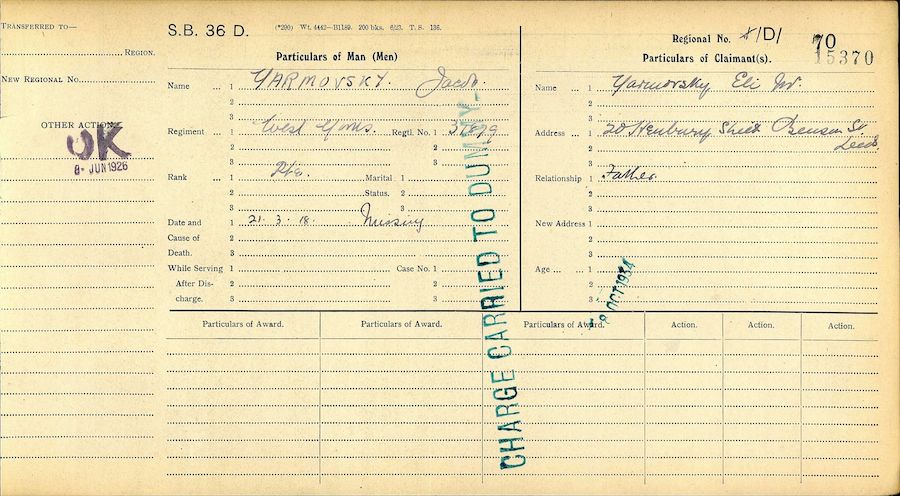 TRANSFERRED TO—
REGION.
NEW REGIONAL NO.
OTHER ACTION
OK
8 - JUN 1926
S.B. 36 D. (*290) Wt. 4442—B1189. 200 bks. 6/23. T.S. 136.
Particulars of Man (Men)
Name ... 1 YARMOVSKY. Jacob.
2
3
Regiment ... 1 West Yorks. Regtl. No. 1
2 2
3 3
Rank ... 1 Pte. Marital 1
2 Status. 2
3 3
Date and 1 21. 3. 18. Missing
Cause of 2
Death. 3
While Serving 1 Case No. 1
After Dis- 2 2
charge. 3 3
Regional No. /D/ 70
15370
Particulars of Claimant(s).
Name ... 1 Yarmovsky Eli Mr.
2
3
Address ... 1 20 Benson St.
2 Leeds
3
Relationship 1 Father.
2
3
New Address 1
2
3
Age ... ... 1
2
3
CHARGE CARRIED TO DUMMY
OCT 1934
Particulars of Award. Particulars of Award. Particulars of Award. Action. Action. Action.